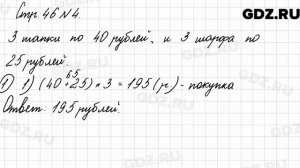 GDZ.RU
Стр 46 N 4.
3 шапки по 40 рублей, и 3 шарфа по
25 рублей.
65
1) 1) (40+25) * 3 = 195 (р) - покупка
Ответ: 195 рублей.
GDZ.RU